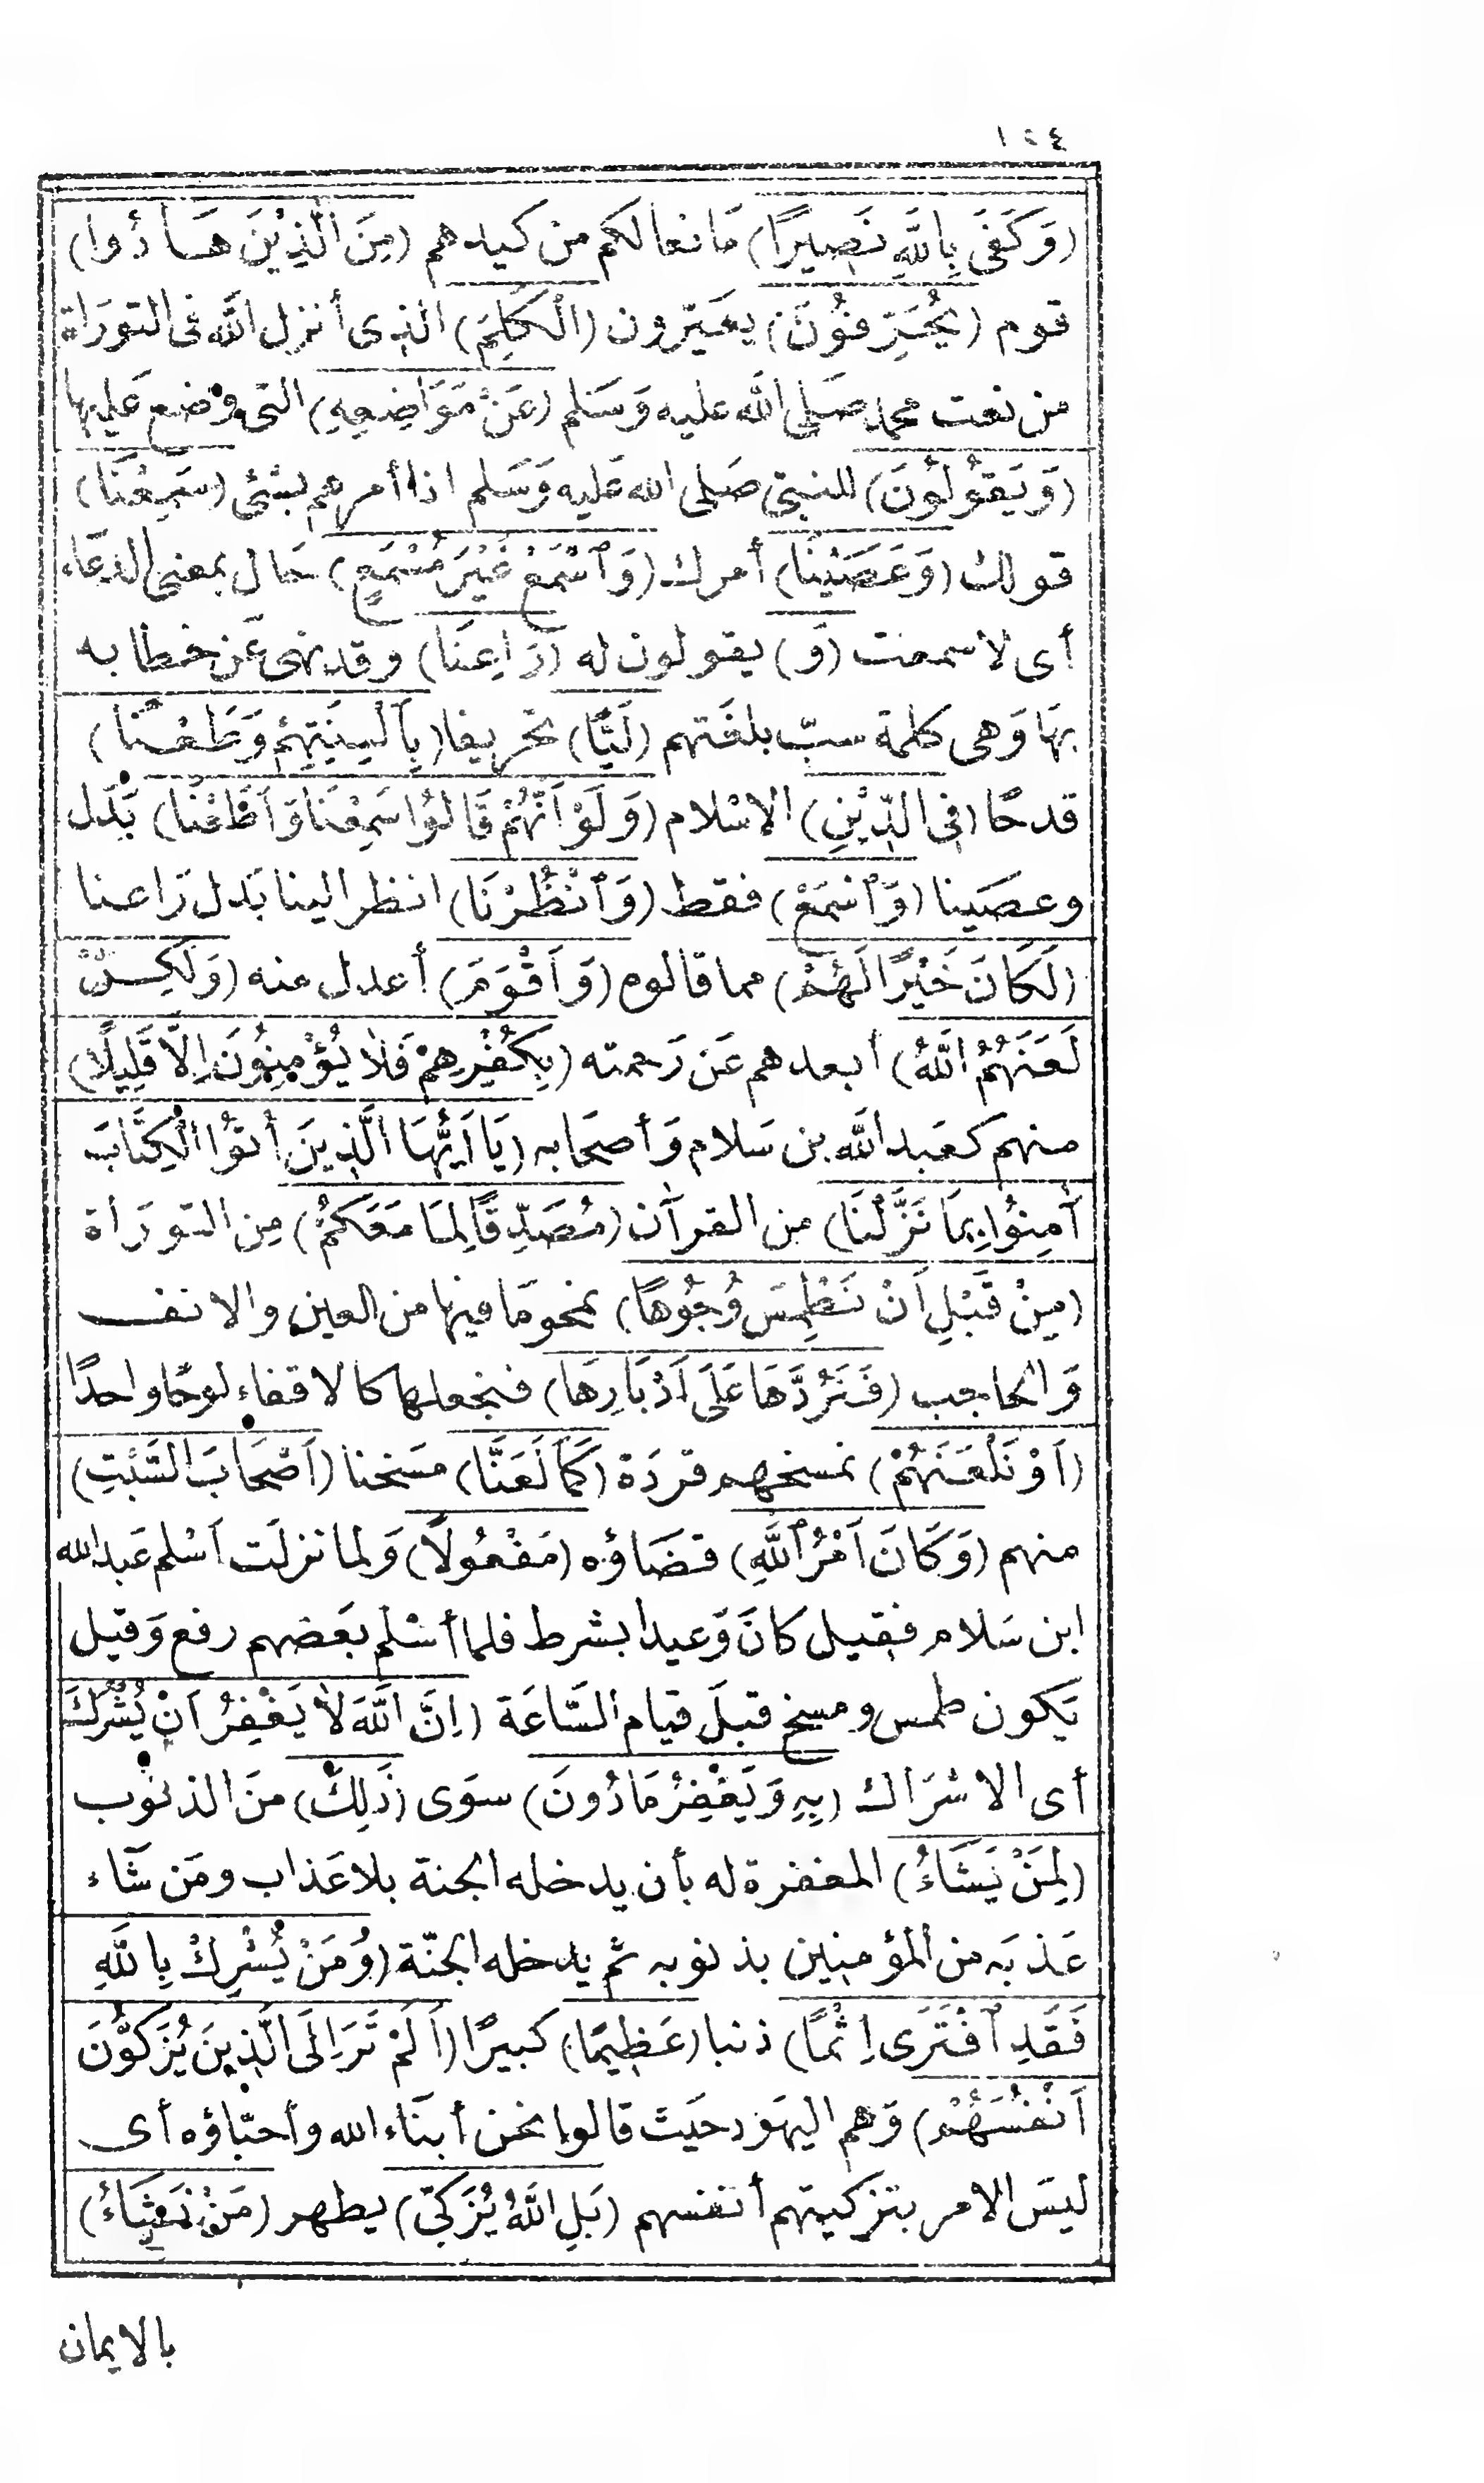 ١٥٤
(وَكَفَى بِاللَّهِ نَصِيرًا) مَانعا لكم من كيدهم (مِنَ الَّذِيْنَ هَادُوا)
قوم (يُحَرِّفُوْنَ) يغَيّرون (الْكَلِمَ) الذى أنزل اللَّه فى التورَاة
من نعت محمد صَلى اللَّه عليه وَسَلم (عَنْ مَوَاضِعِهِ) التى وضع عَليها
(وَيَقُوْلُوْنَ) للنبىّ صَلى الله عَليه وَسَلم اذا أمرهم بشئ (سَمِعْنَا)
قولك (وَعَصَيْنَا) أمرك (وَٱسْمَعْ غَيْرَ مُسْمَعٍ) حَال بمعنى الدعَاء
أى لاسمعت (وَ) يقولون له (رَاعِنَا) وقد نهى عَن خطابه
بهَا وَهى كلمة سبّ بلغَتهم (لَيًّا) تحريفا (بِاَلْسِنَتِهِمْ وَطَعْنًا)
قدحًا (فِى الدِّيْنِ) الاسْلام (وَلَوْ اَنَّهُمْ قَالُوْا سَمِعْنَا وَاَطَعْنَا) بَدَل
وعصَينا (وَٱسْمَعْ) فقط (وَٱنْظُرْنَا) انظر الينا بَدل رَاعنا
(لَكَانَ خَيْرًا لَهُمْ) مما قالوه (وَاَقْوَمَ) أعدل منه (وَلَكِنْ
لَعَنَهُمُ اللَّهُ) أبعدهم عَن رَحمته (بِكُفْرِهِمْ فَلَا يُؤْمِنُوْنَ اِلَّا قَلِيلًا)
منهم كعَبد اللَّه بن سَلام وَأصحَابه (يَا اَيُّهَا الَّذِينَ أُوتُوا الْكِتَابَ
آمِنُوْا بِمَا نَزَّلْنَا) من القرآن (مُصَدِّقًا لِمَا مَعَكُمْ) مِن التورَاة
(مِنْ قَبْلِ اَنْ نَطْمِسَ وُجُوْهًا) نمحو مَا فيها من العين والانف
وَالحاجب (فَنَرُدَّهَا عَلَى اَدْبَارِهَا) فنجعلها كالاقفاء لوحًا واحدًا
(اَوْ نَلْعَنَهُمْ) نمسخهم قردَة (كَمَا لَعَنَّا) مسَخنا (اَصْحَابَ السَّبْتِ)
منهم (وَكَانَ اَمْرُ ٱللَّهِ) قضَاؤه (مَفْعُولًا) وَلما نزلَت اَسْلم عَبد الله
ابن سَلام فقيل كانَ وَعيدا بشرط فلما أسْلم بعَضهم رفع وَقيل
يَكون طمس ومسخ قبلَ قيام السَّاعَة (اِنَّ اللَّهَ لَا يَغْفِرُ اَنْ يُشْرَكَ
أى الاشْرَاك (بِهِ وَيَغْفِرُ مَا دُونَ) سوَى (ذَلِكَ) منَ الذنوب
(لِمَنْ يَشَاءُ) المغفرة له بأن يدخله الجنة بلا عَذاب ومَن شَاء
عَذبَه من المؤمنين بذنوبه ثم يدخله الجنّة (وَمَنْ يُشْرِكْ بِاللَّهِ
فَقَدِ ٱفْتَرَى اِثْمًا) ذنبا (عَظِيمًا) كبيرًا (اَلَمْ تَرَ اِلَى الَّذِينَ يُزَكُّوْنَ
اَنْفُسَهُمْ) وَهم اليهَود حَيث قالوا نحن أبنَاء الله وأحبّاؤه أى
ليسَ الامر بتزكيتهم أنفسهم (بَلِ اللَّهُ يُزَكِّى) يطهر (مَنْ يَشَاءُ)
بالايمان